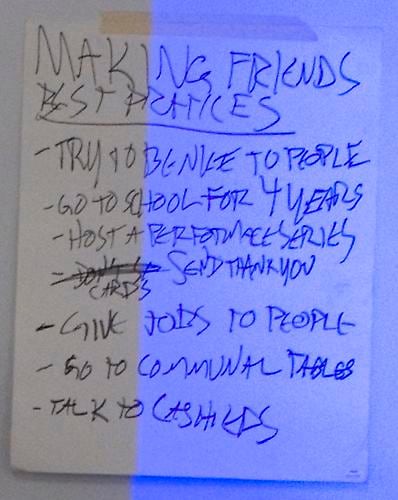 MAKING FRIENDS
BEST PRATICES
- TRY TO BE NICE TO PEOPLE
- GO TO SCHOOL FOR 4 YEARS
- HOST A PERFORMACE SERIES
- SEND THANK YOU
CARDS
- GIVE JOBS TO PEOPLE
- GO TO COMMUNAL TABLES
- TALK TO